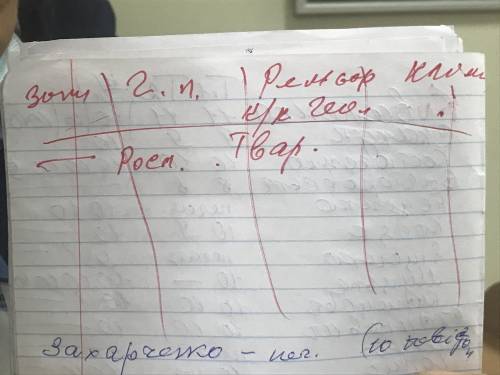 Зони Г. п. Рельєф Клім
к/к геол.
← Росл. Твар.
Захарченко - неч. (10 повідо